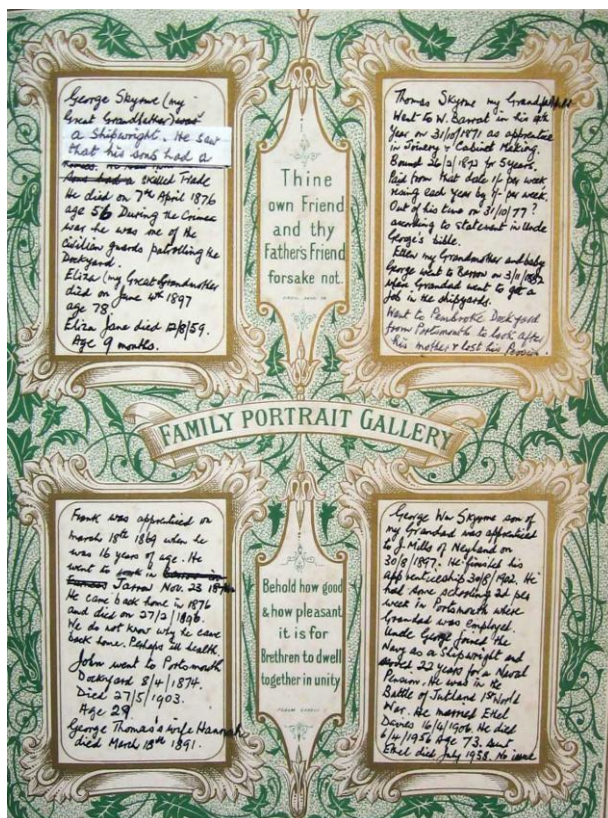 George Skyrme (my
Great Grandfather) was
a Shipwright. He saw
that his sons had a
sons had a skilled Trade
He died on 7th April 1876
age 56 During the Crimea
war he was one of the
Civilian guards patrolling the
Dockyard.
Eliza (my Great Grandmother
died on June 4th 1897
age 78.
Eliza Jane died 12/8/59.
Age 9 months.
Thine
own Friend
and thy
Father's Friend
forsake not.
Thomas Skyrme my Grandfather
Went to W. Barrat in his 19th
Year on 31/10/1871 as apprentice
in Joinery & Cabinet Making.
Bound 26/2/1872 for 5 years.
Paid from that date 1/- per week
rising each year by 1/- per week.
Out of his time on 31/10/77?
according to statement in Uncle
George's bible.
Ellen my Grandmother and baby
George went to Barrow on 3/11/1882
when Grandad went to get a
job in the shipyards.
Went to Pembroke Dockyard
from Portsmouth to look after
his mother & lost his Pension.
FAMILY PORTRAIT GALLERY
Frank was apprenticed on
March 18th 1869 when he
was 16 years of age. He
went to work in
Jarrow Nov. 23
He came back home in 1876
and died on 27/2/1896.
We do not know why he came
back home. Perhaps ill health.
John went to Portsmouth
Dockyard 8/4/1874.
Died 27/5/1903.
Age 29
George Thomas's wife Hannah
died March 13th 1891.
Behold how good
& how pleasant
it is for
Brethren to dwell
together in unity
George Wm Skyrme son of
my Grandad was apprenticed
to J. Mills of Neyland on
30/8/1897. He finished his
apprenticeship 30/8/1902. He
had some schooling 2d per
week in Portsmouth where
Grandad was employed.
Uncle George joined the
Navy as a Shipwright and
served 22 years for a Naval
Pension. He was in the
Battle of Jutland 1st World
War. He married Ethel
Davies 16/4/1906. He died
6/4/1956 Age 73. Aunt
Ethel died July 1958. No issue